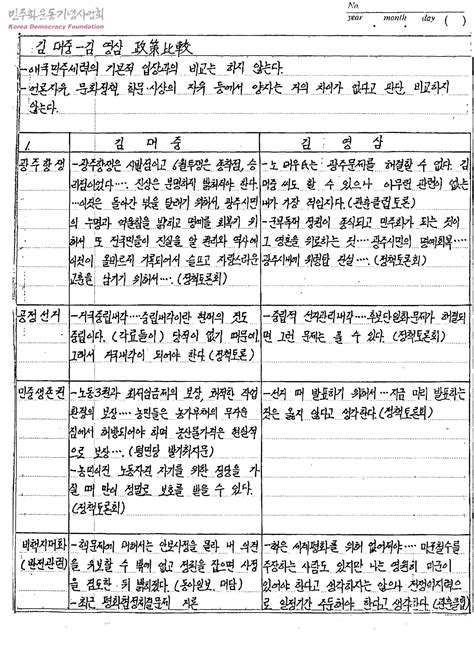 민주화운동기념사업회
Korea Democracy Foundation
No.
year month day ( )
김 대중 - 김 영삼 政策比較
- 애국민주세력의 기본적 입장과의 비교는 하지 않는다.
- 언론자유, 문화정책, 학문·사상의 자유 등에서 양자는 거의 차이가 없다고 판단, 비교하지
않는다.
1.
김 대 중
김 영 삼
광주항쟁
- 광주항쟁은 시발점이고 6월투쟁은 종착점, 승
리점이었다…. 진상은 분명하게 밝혀져야 한다.
…이것은 돌아간 넋을 달래기 위해서, 광주시민
의 누명과 억울함을 밝히고 명예를 회복키 위
해서 또 전국민들이 진실을 알 권리와 역사에
이것이 올바르게 기록되어서 슬프고 자랑스러운
교훈을 남기기 위해서…. (정책토론회)
- 노 태우氏는 광주문제를 해결할 수 없다. 김
대중 씨도 할 수 있으나 아무런 관련이 없는
내가 가장 적임자다. (관훈클럽토론)
- 군부독재 정권이 종식되고 민주화가 되는 것이
그 영혼을 위로하는 것… 광주시민의 명예회복…
광주시내에 위령탑 건설…. (정책토론회)
공정선거
- 거국중립내각… 중립내각이란 현하의 것도
중립이다. (각료들이) 당적이 없기 때문에
그래서 거국내각이 되어야 한다 (정책토론)
- 중립적 선거관리내각… 후보단일화문제가 해결되
면 그런 문제는 풀 수 있다. (정책토론회)
민중생존권
- 노동3권과 최저임금제의 보장, 쾌적한 작업
환경의 보장… 농민들은 농가부채의 무거운
짐에서 해방되어야 하며 농산물가격은 현실적
으로 보장…. (평민당 발기취지문)
(정책토론회)
- 선거 때 발표하기 위해서… 지금 미리 발표하는
것은 옳지 않다고 생각한다 (정책토론회)
비핵지대화
(반전관련)
- 핵문제에 대해서는 안보사정을 몰라 내 의견
을 유보할 수 밖에 없고 정권을 잡으면 사정
을 검토한 뒤 밝히겠다. (동아일보, 대담)
- 핵은 세계평화를 위해 없어져야… 미군철수를
주장하는 사람도 있지만 나는 영원히 미군이
있어야 한다고 생각하지는 않으나 전쟁억지력으
로 일정기간 주둔해야 한다고 생각한다. (관훈클럽)